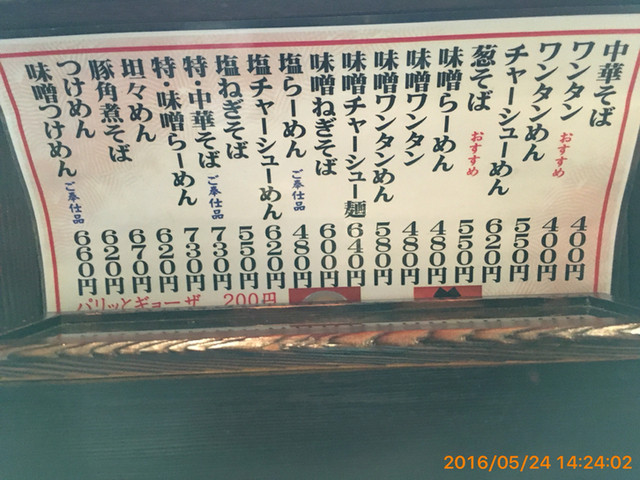 中華そば 400円
ワンタン おすすめ 400円
ワンタンめん 550円
チャーシューめん 620円
葱そば おすすめ 550円
味噌らーめん 480円
味噌ワンタン 480円
味噌ワンタンめん 580円
味噌チャーシュー麺 640円
味噌ねぎそば 600円
塩らーめん ご奉仕品 480円
塩チャーシューめん 620円
塩ねぎそば 550円
特・中華そば ご奉仕品 730円
特・味噌らーめん 730円
坦々めん 620円
豚角煮そば 670円
つけめん 620円
味噌つけめん ご奉仕品 660円
パリッとギョーザ 200円
2016/05/24 14:24:02